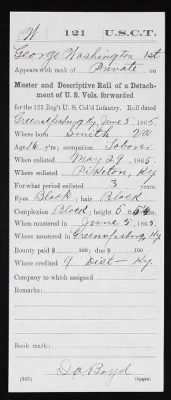 W 121 U.S.C.T.
George Washington 1st
Appears with rank of Private on
Muster and Descriptive Roll of a Detach-
ment of U. S. Vols. forwarded
for the 121 Reg't U. S. Col'd Infantry. Roll dated
Greensburg Ky, June 5, 1865.
Where born Smith, VA
Age 16 y'rs; occupation Laborer
When enlisted May 29, 1865.
Where enlisted Piketon, Ky.
For what period enlisted 3 years.
Eyes Black; hair Black
Complexion Black; height 5 ft. in.
When mustered in June 5, 1865.
Where mustered in Greensburg, Ky
Bounty paid $ 100; due $ 100
Where credited 9 Dist Ky.
Company to which assigned
Remarks:
Book mark:
Boyd
Copyist.